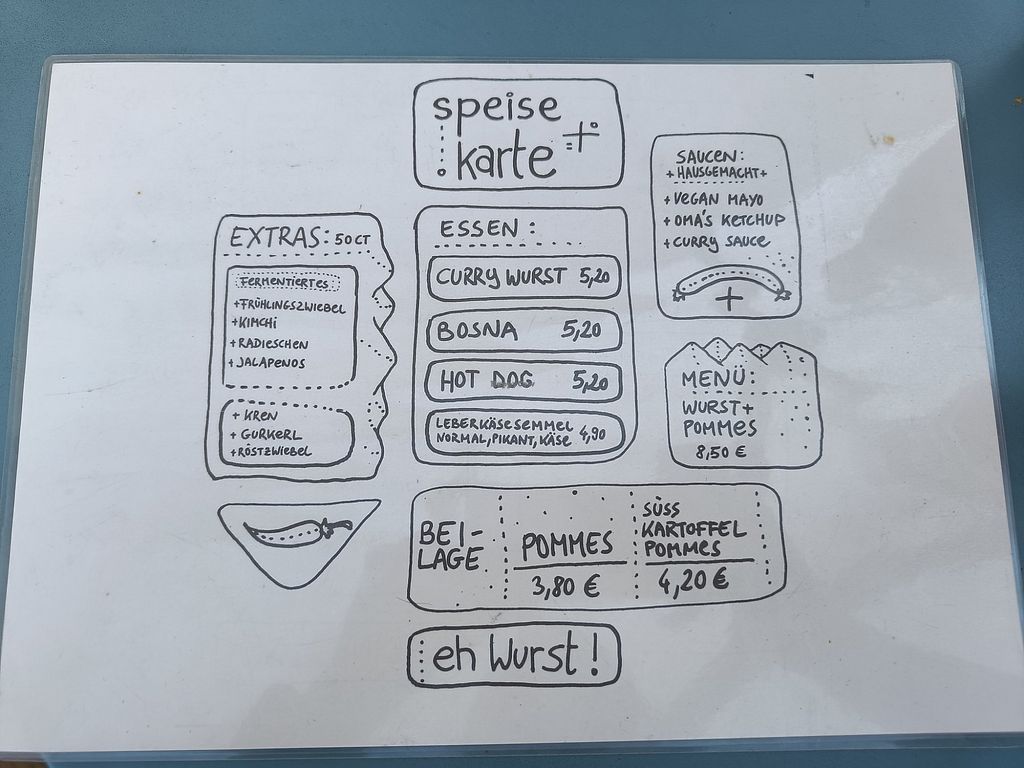 speise
karte
EXTRAS: 50CT
FERMENTIERTES
+FRÜHLINGSZWIEBEL
+KIMCHI
+RADIESCHEN
+JALAPENOS
+ KREN
+ GURKERL
+RÖSTZWIEBEL
ESSEN:
CURRYWURST 5,20
BOSNA 5,20
HOT DOG 5,20
LEBERKÄSESEMMEL
NORMAL, PIKANT, KÄSE 4,90
SAUCEN:
+HAUSGEMACHT+
+VEGAN MAYO
+OMA'S KETCHUP
+CURRY SAUCE
MENÜ:
WURST+
POMMES
8,50 €
BEI-
LAGE
POMMES
3,80 €
SÜSS
KARTOFFEL
POMMES
4,20 €
eh Wurst!